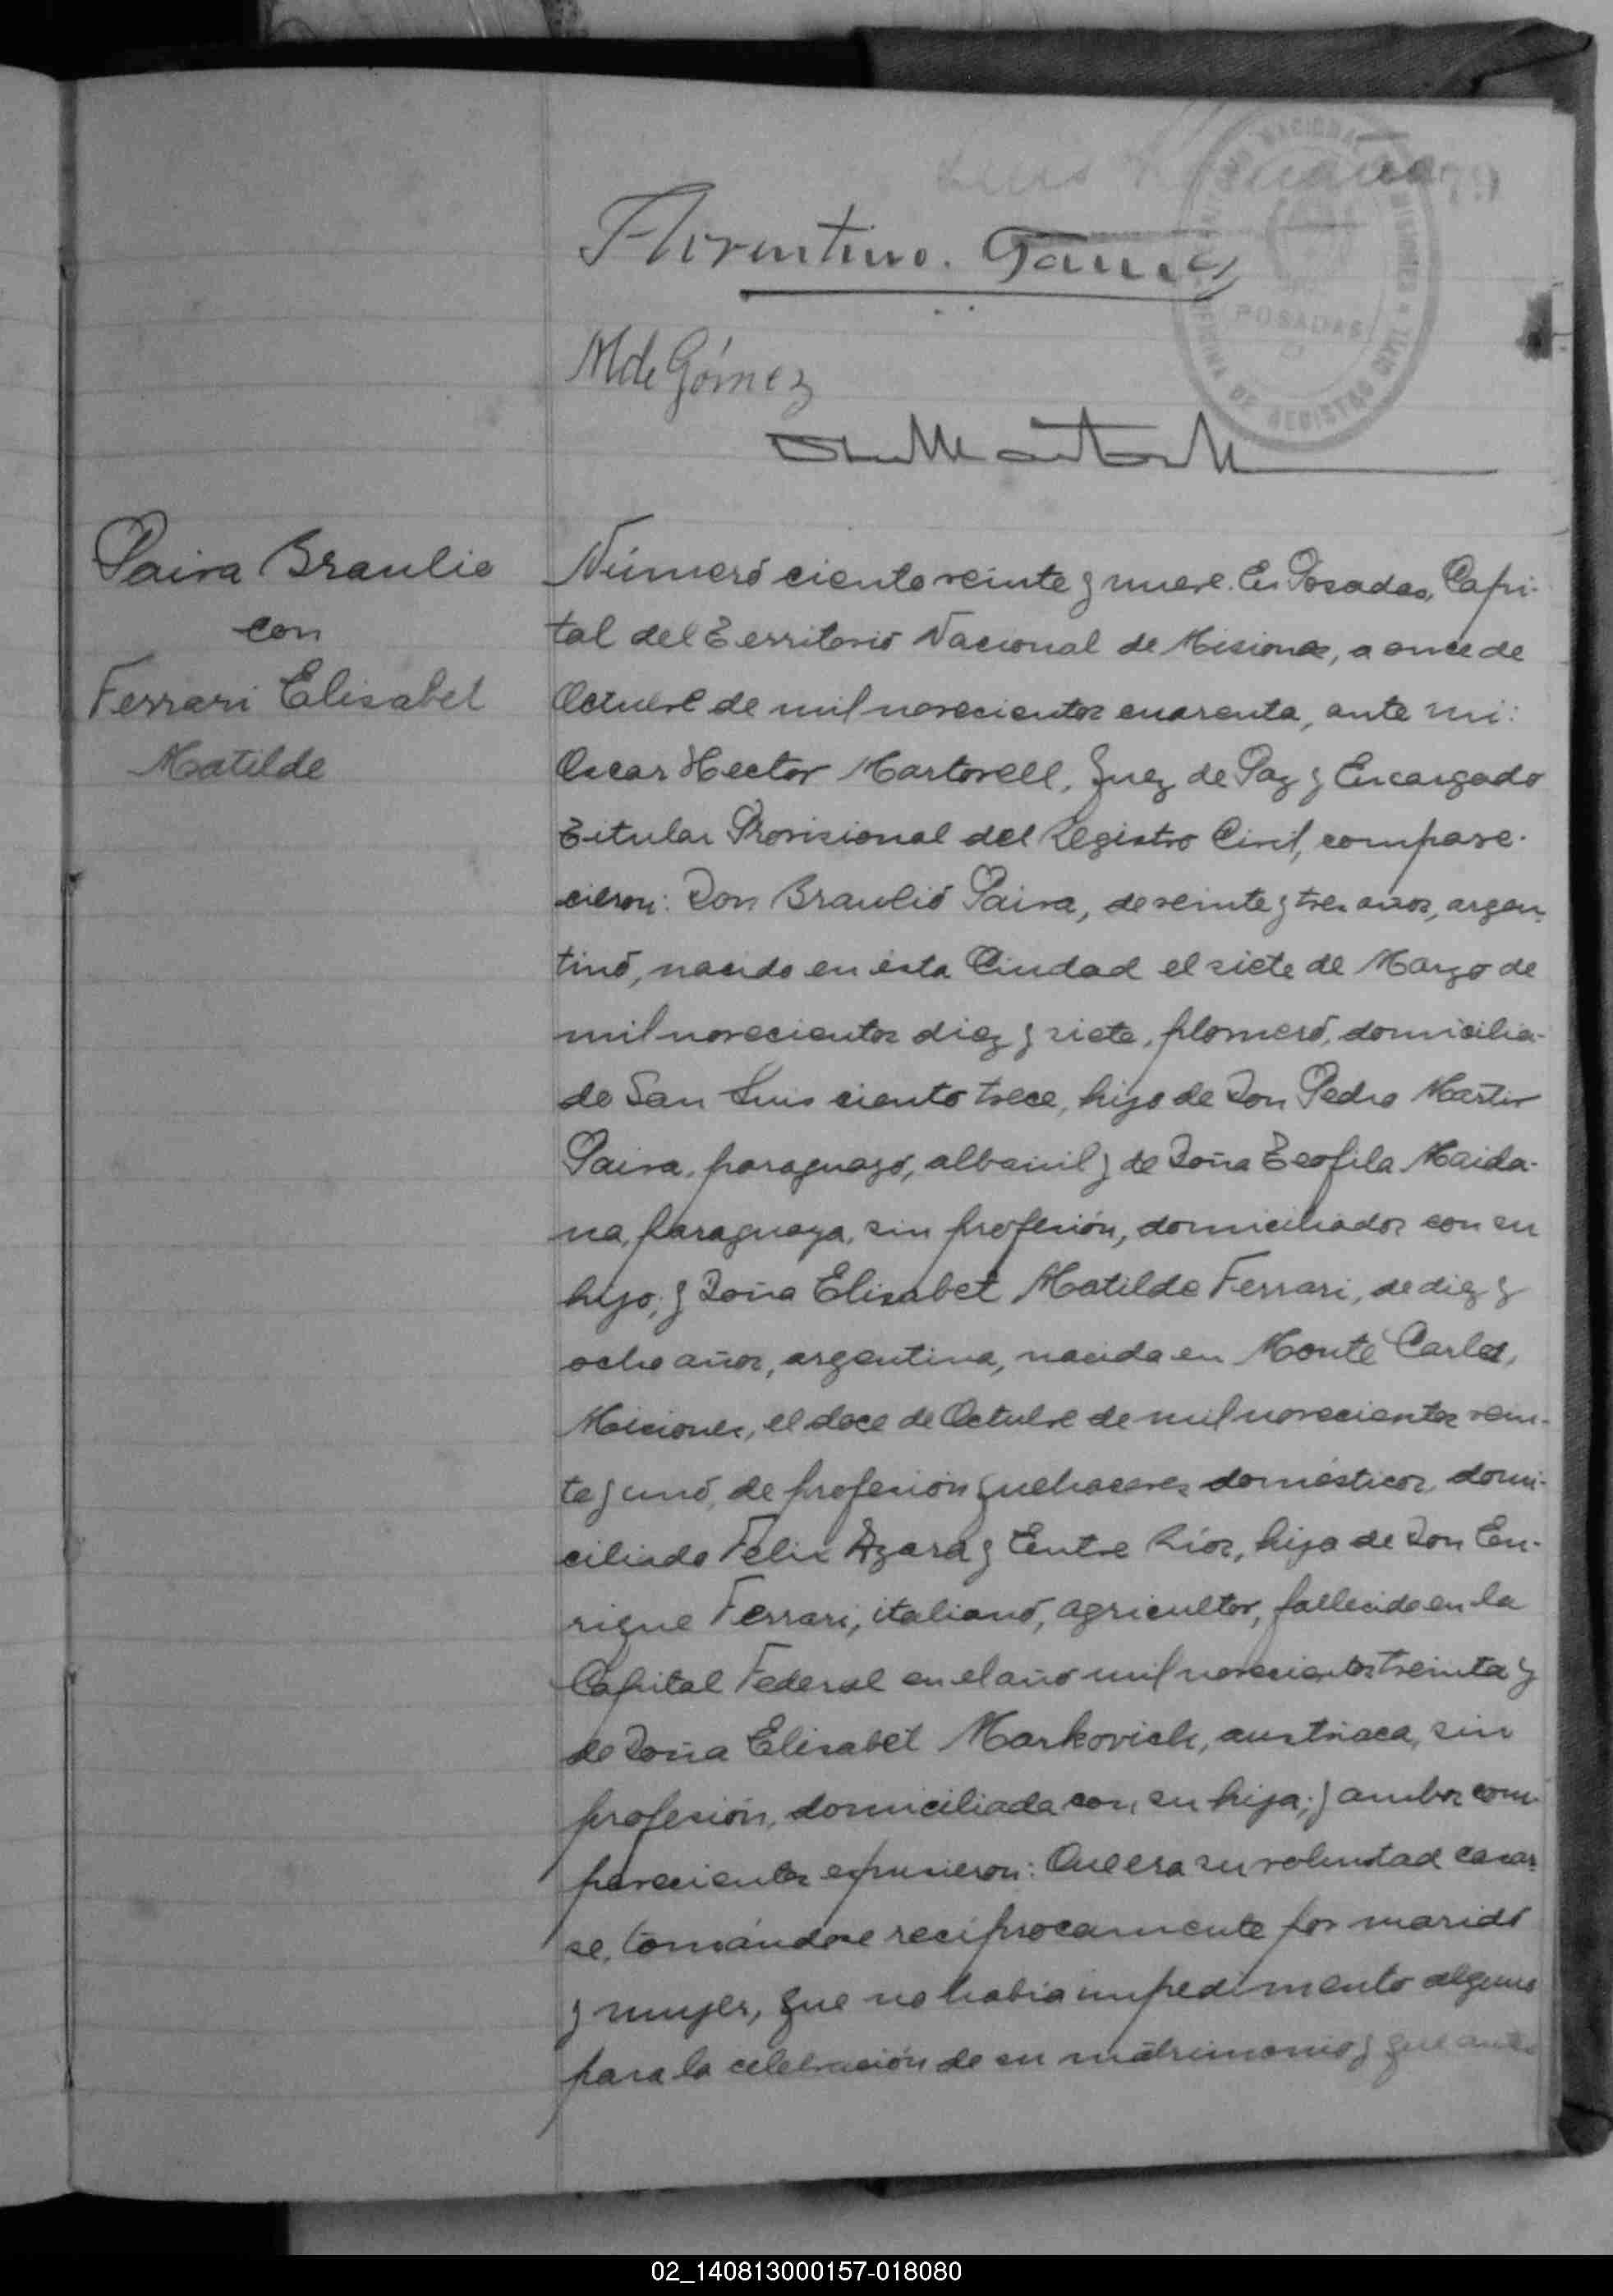 79
Florentino. Gómez
M de Gómez
POSADAS
Paiva Braulio
con
Ferrari Elisabet
Matilde
Número ciento veinte y nueve. En Posadas, Capi-
tal del Territorio Nacional de Misiones, a once de
Octubre de mil novecientos cuarenta, ante mi:
Oscar Hector Martorell, Juez de Paz y Encargado
Titular Provisional del Registro Civil, compare-
cieron: Don Braulio Paiva, de veinte y tres años, argen-
tino, nacido en ésta Ciudad el siete de Marzo de
mil novecientos diez y siete, plomero, domicilia-
do San Luis ciento trece, hijo de Don Pedro Martir
Paiva, paraguayo, albañil y de Doña Teofila Maida-
na, paraguaya, sin profesión, domiciliados con su
hijo; y Doña Elisabet Matilde Ferrari, de diez y
ocho años, argentina, nacida en Monte Carlo,
Misiones, el doce de Octubre de mil novecientos vein-
te y uno, de profesión quehaceres domésticos, domi-
ciliada Felix Azara y Entre Ríos, hija de Don En-
rique Ferrari, italiano, agricultor, fallecido en la
Capital Federal en el año mil novecientos treinta y
de Doña Elisabet Markovich, austriaca, sin
profesión, domiciliada con su hija; y ambos com-
parecientes expusieron: Que era su voluntad casar-
se, tomándose recíprocamente por marido
y mujer, que no habia impedimento alguno
para la celebración de su matrimonio y que antes
02_140813000157-018080